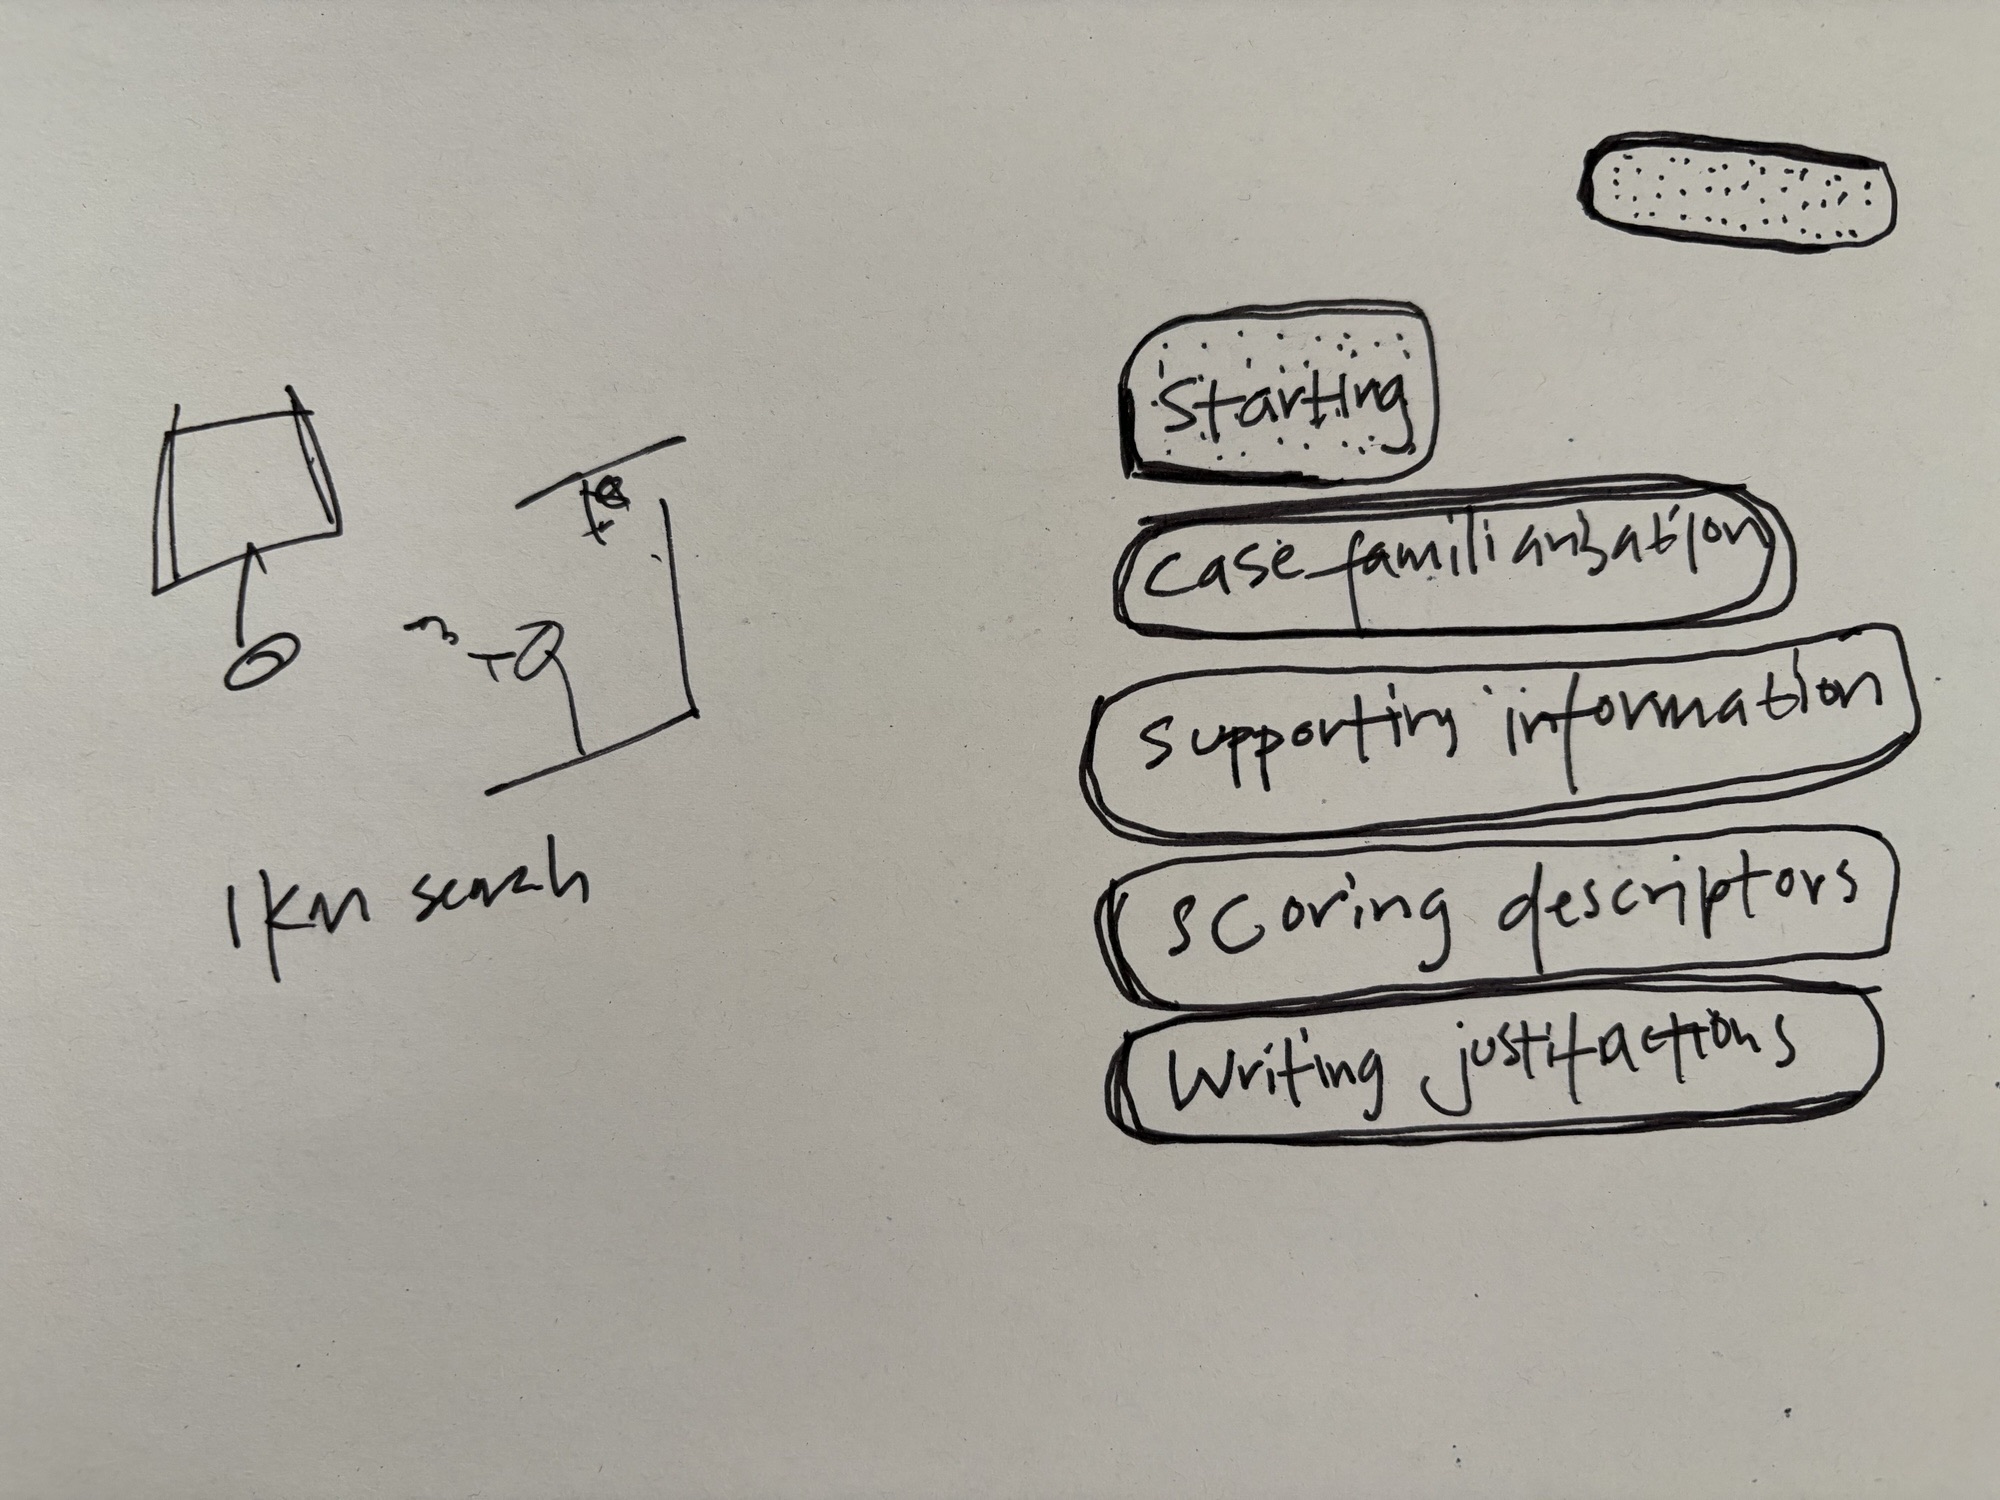 starting
case familiarization
supporting information
scoring descriptors
Writing justifactions
1km search